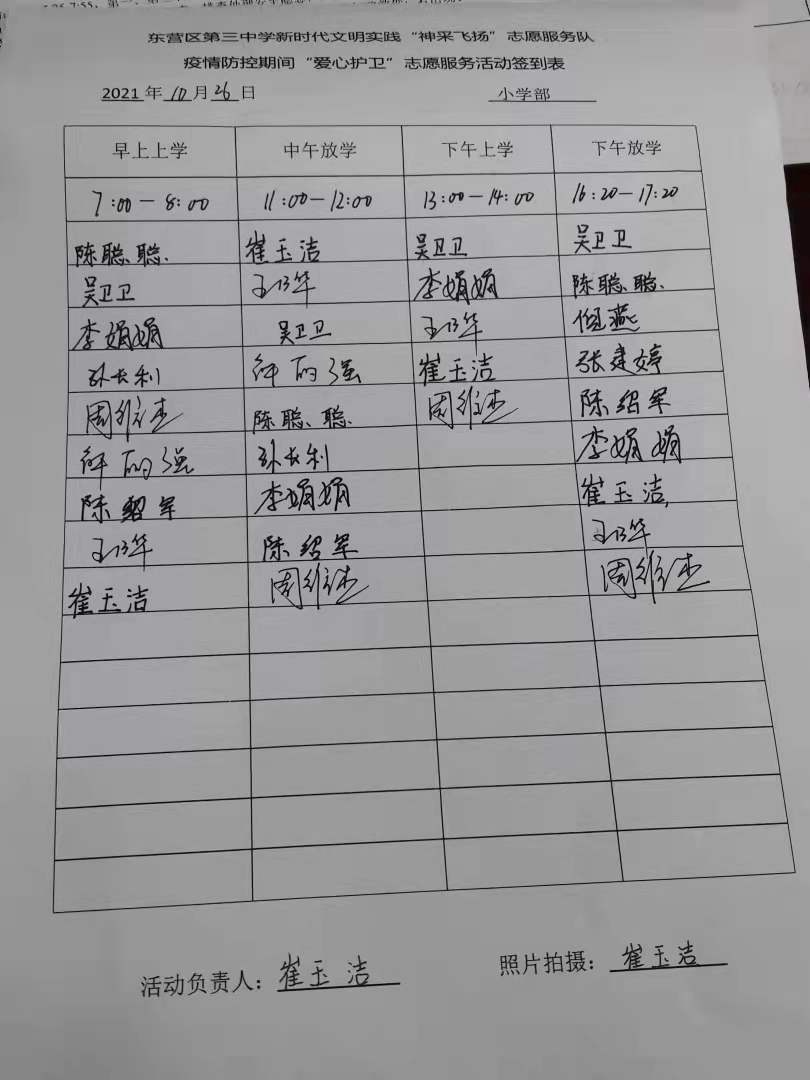 东营区第三中学新时代文明实践“神采飞扬”志愿服务队
疫情防控期间“爱心护卫”志愿服务活动签到表
2021 年 10 月 26 日 小学部
早上上学 中午放学 下午上学 下午放学
7:00-8:00 11:00-12:00 13:00-14:00 16:20-17:20
陈聪聪 崔玉洁 吴卫卫 吴卫卫
吴卫卫 李娟娟 陈聪聪
李娟娟 吴卫卫 倪燕
孙长利 崔玉洁 张建婷
周维杰 陈聪聪 周维杰 陈绍军
孙长利 李娟娟
陈绍军 李娟娟 崔玉洁
陈绍军
崔玉洁 周维杰 周维杰
活动负责人：崔玉洁 照片拍摄：崔玉洁